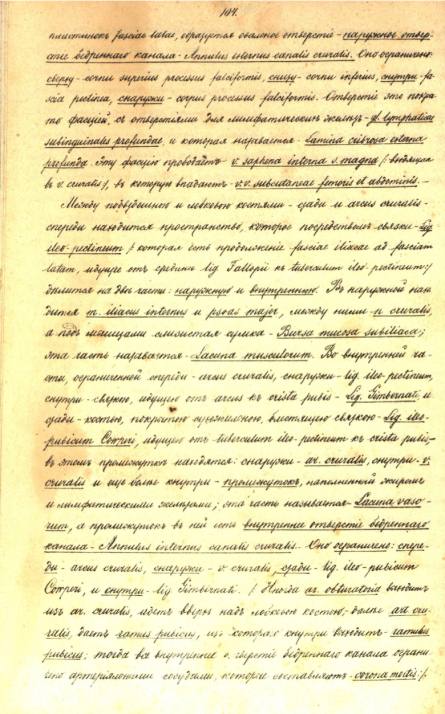 104.
пластинокъ fasciae latae, образуется овальное отверстіе - наружное отвер-
стіе бедреннаго канала - Annulus internus canalis cruralis. Оно ограничено:
сверху - cornu superius processus falciformis, снизу - cornu inferius, снутри - fa-
scia pectinea, снаружи - corpus processus falciformis. Отверстіе это покры-
то фасціей, съ отверстіями для лимфатическихъ железъ - gl. lymphaticae
subinguinales profundae, и которая называется - Lamina cribrosa externa
profunda. Эту фасцію прободаетъ v. saphena interna s. magna /: входящая
въ v. cruralis :/, въ которую впадаютъ v.v. subcutaneae femoris et abdominis.
Между подвздошными и лобковою костями - сзади и arcus cruralis -
спереди находится пространство, которое посредствомъ связки - Lig.
ileo-pectineum /: которая есть продолженіе fasciae iliacae ad fasciam
latam, идущее отъ средины lig. Fallopii къ tuberculum ileo-pectineum :/
дѣлится на двѣ части: наружную и внутреннюю. Въ наружной нахо-
дится m. iliacus internus и psoas major, между ними n. cruralis,
а подъ мышцами слизистая сумка - Bursa mucosa subiliaca;
эта часть называется - Lacuna musculorum. Во внутренней ча-
сти, ограниченной спереди - arcus cruralis, снаружи - lig. ileo-pectineum,
снутри - связкою, идущею отъ arcus къ crista pubis - Lig. Gimbernati и
сзади - костью, покрытою сухожильною, блестящею связкою - Lig. ileo-
pubicum Cooperi, идущею отъ tuberculum ileo-pectineum къ crista pubis,
въ этомъ промежуткѣ находятся: снаружи - ar. cruralis, снутри - v.
cruralis и еще болѣе кнутри - промежутокъ, наполненный жиромъ
и лимфатическими железами; эта часть называется Lacuna vaso-
rum, а промежутокъ въ ней есть внутреннее отверстіе бедреннаго
канала - Annulus internus canalis cruralis. Оно ограничено: спере-
ди - arcus cruralis, снаружи - v. cruralis, сзади - lig. ileo-pubicum
Cooperi, и снутри - lig. Gimbernati. /: Иногда ar. obturatoria выходитъ
изъ ar. cruralis, идетъ вверхъ надъ лобковою костью, ar. cru-
ralis, даетъ ramus pubicus, изъ которой кнутри выходитъ ramus
pubicus; тогда все внутреннее отверстіе бедреннаго канала ограни-
чено артеріальными сосудами, которые составляютъ corona mortis :/.